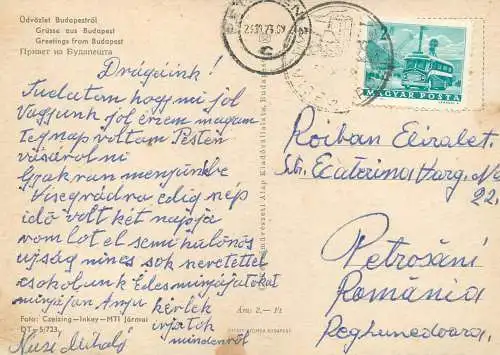 Üdvözlet Budapestről
Grüsse aus Budapest
Greetings from Budapest
Привет из Будапешта
Drágáink!
Tudatom hogy mi jól
Vagyunk jól érzem magam
Tegnap voltam Pesten
vásárolni
Gyakran menyünk be
Visegrádra edig nép
idő volt két napja
romlot el semi hülönös
ujság nincs sok nevetettel
csokolunk Édes mindjájotokat
minyájan Anyu kérlek
irjatok
mindenről
Foto: Czeizing—Inkey—MTI Jármai
Nusi Mihály
Ára: 2,— Ft
Művészeti Alap Kiadóvállalata, Budapest
2
MAGYAR POSTA
Roiban Elizabet.
Str. Ecaterina Varg. No
22.
Petrosáni
Románia
Reghunedoara.